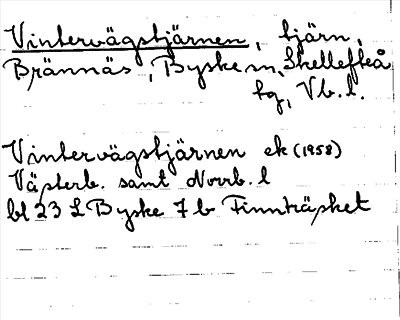 Vintervägstjärnen, tjärn,
Brännäs, Byske sn, Skellefteå
kg, Vb. l.
Vintervägstjärnen ek (1958)
Västerb. samt Norrb. l
bl 23 L Byske 7 b Finnträsket